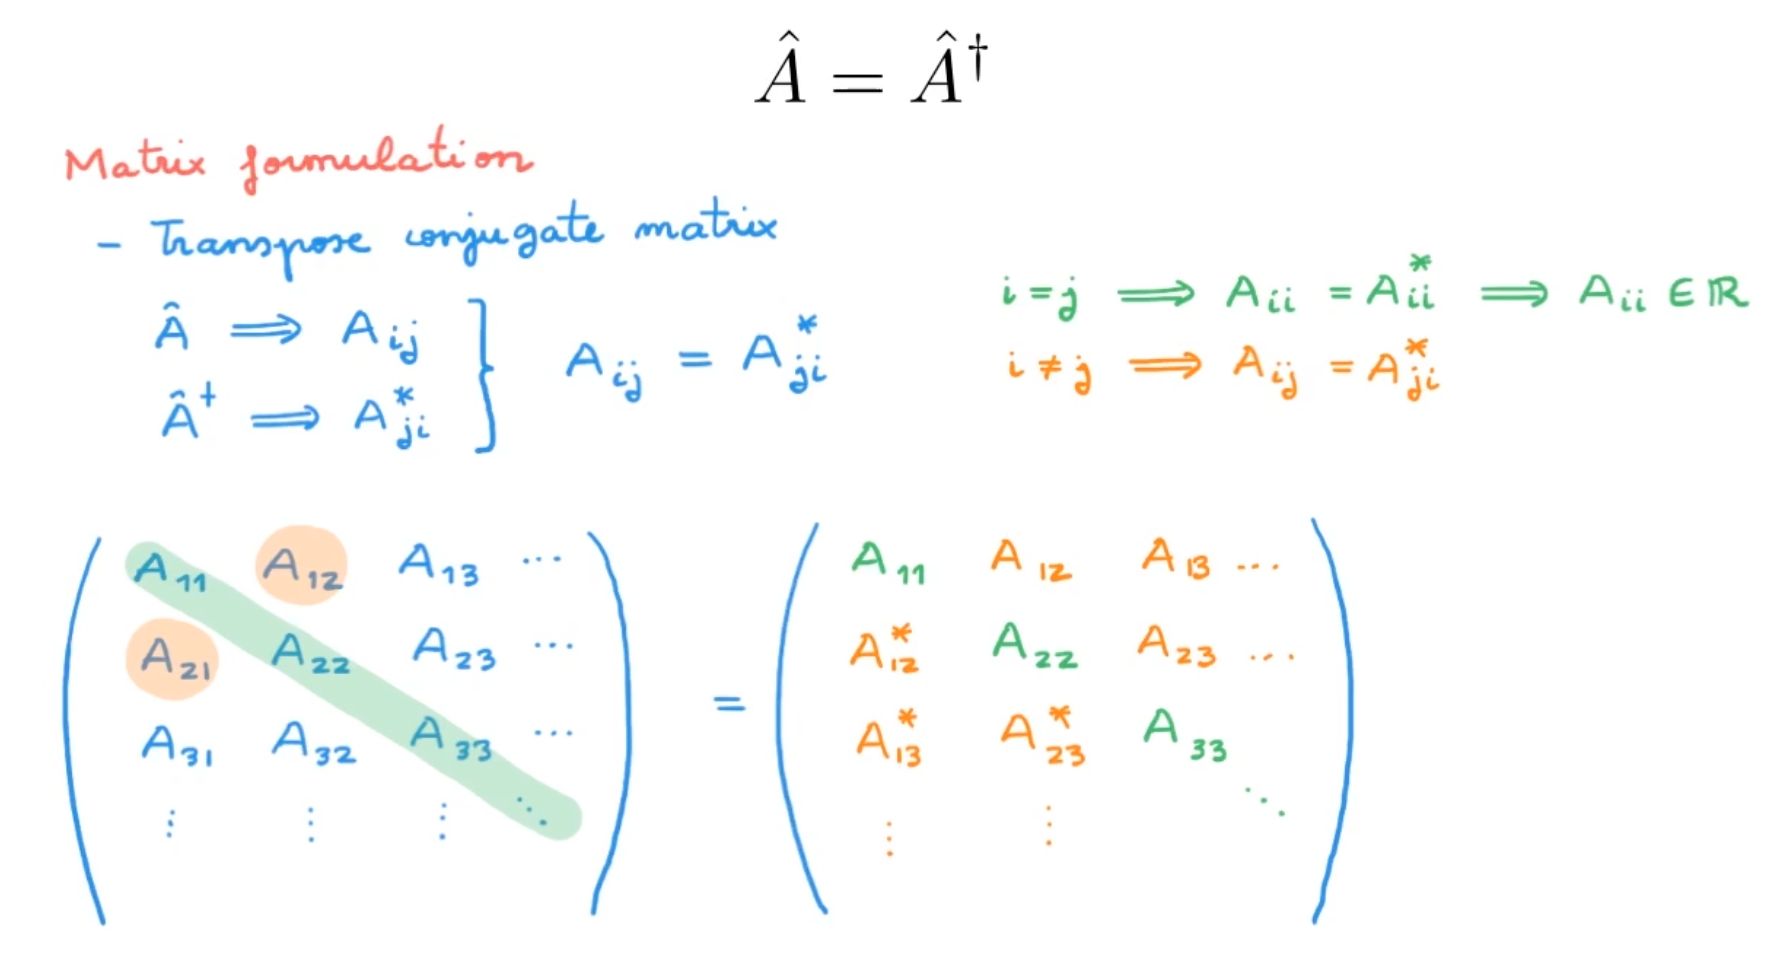 Â = Â†
Matrix formulation
- Transpose conjugate matrix
Â ⟹ A_ij
Â† ⟹ A*_ji
} A_ij = A*_ji
i = j ⟹ A_ii = A*_ii ⟹ A_ii ∈ ℝ
i ≠ j ⟹ A_ij = A*_ji
( A_11 A_12 A_13 ⋯
A_21 A_22 A_23 ⋯
A_31 A_32 A_33 ⋯
⋮ ⋮ ⋮ ⋱ )
=
( A_11 A_12 A_13 ⋯
A*_12 A_22 A_23 ⋯
A*_13 A*_23 A_33
⋮ ⋮ ⋱ )